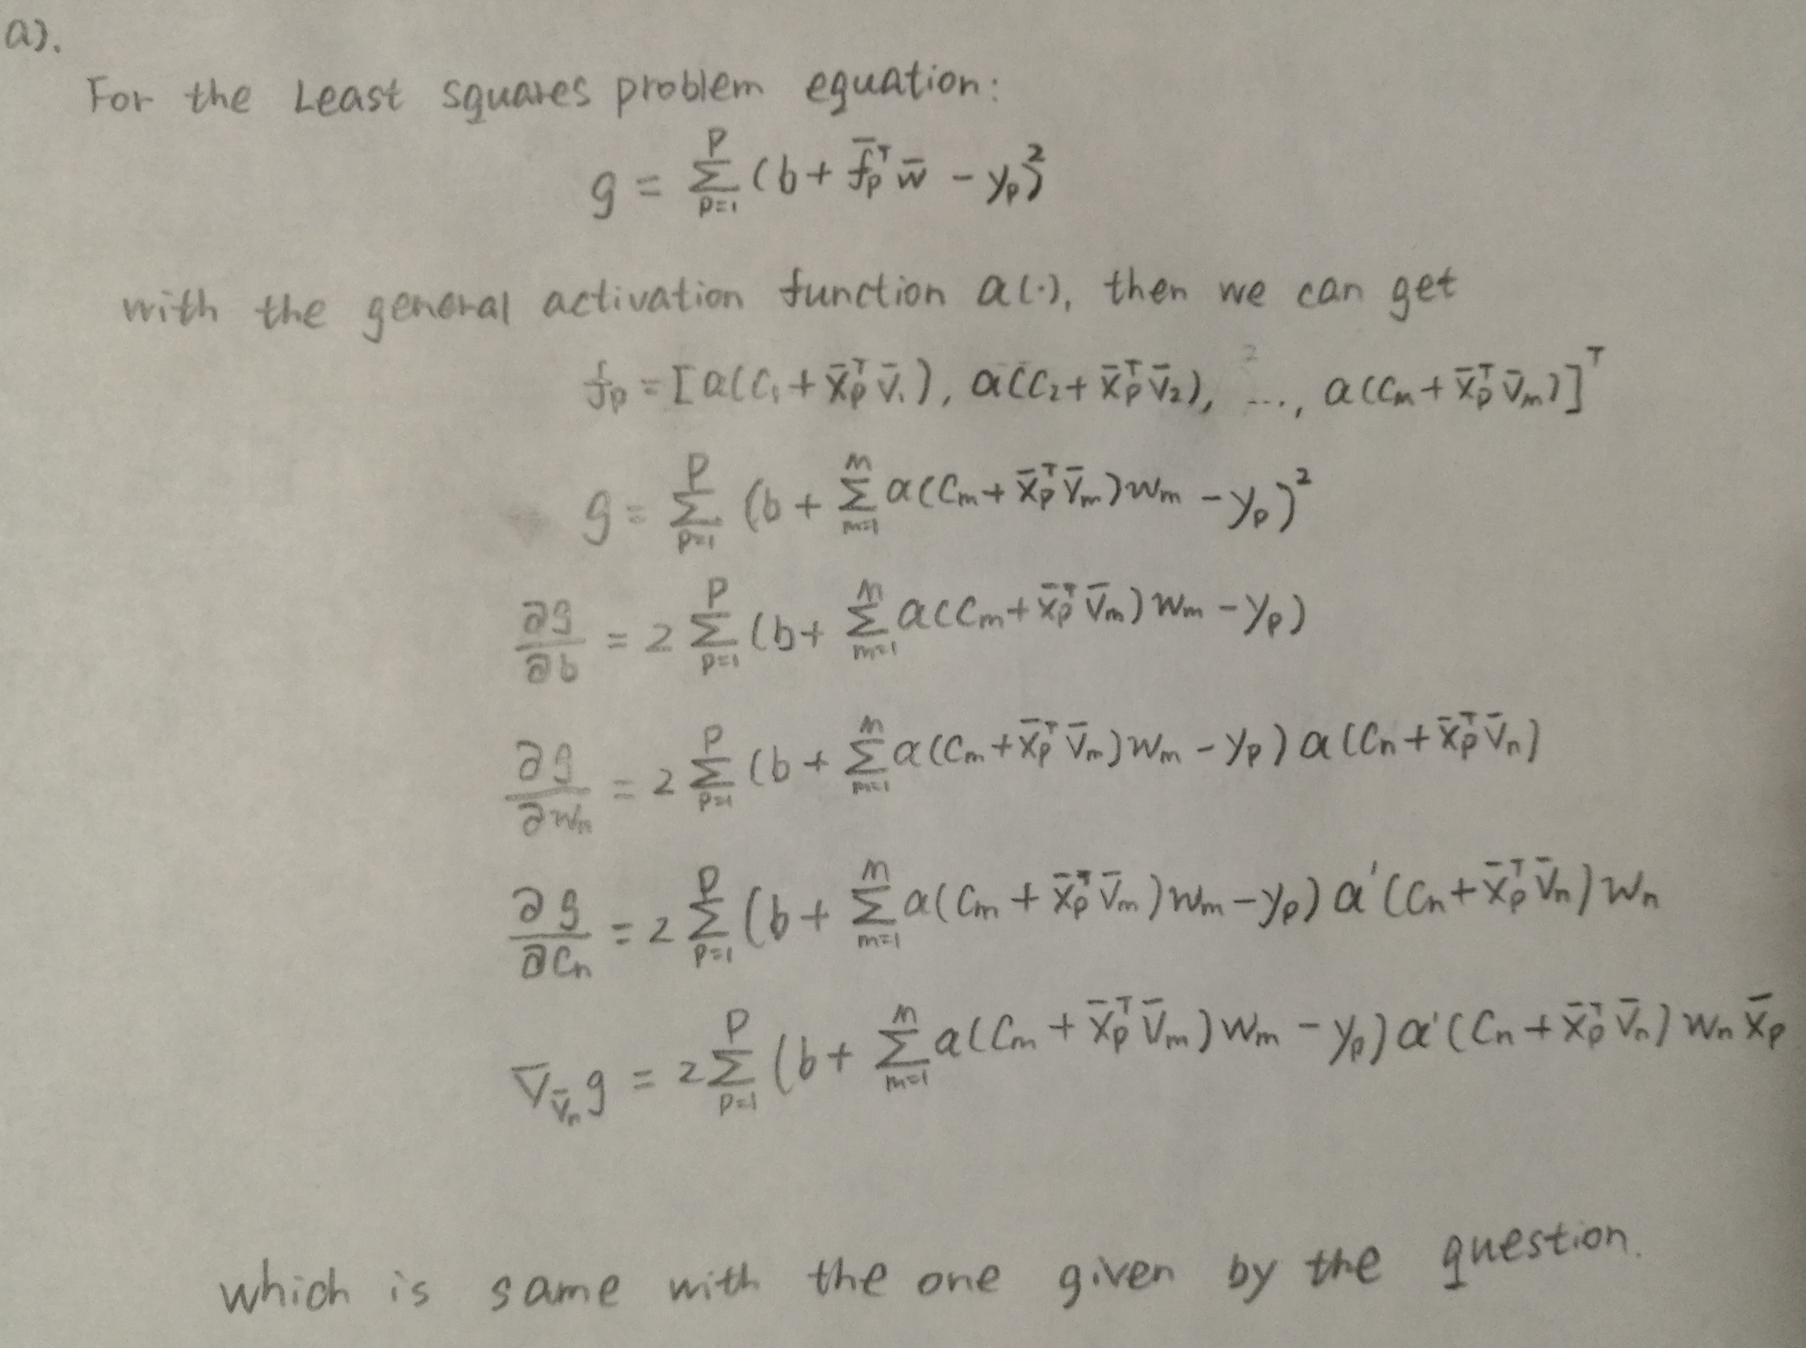 a).
For the Least squares problem equation:
g = ∑_{p=1}^{P} (b + f̄_p^T w̄ - y_p)^2
with the general activation function a(·), then we can get
f_p = [a(c_1 + x̄_p^T v̄_1), a(c_2 + x̄_p^T v̄_2), ..., a(c_m + x̄_p^T v̄_m)]^T
g = ∑_{p=1}^{P} (b + ∑_{m=1}^{M} a(c_m + x̄_p^T v̄_m) w_m - y_p)^2
∂g/∂b = 2 ∑_{p=1}^{P} (b + ∑_{m=1}^{M} a(c_m + x̄_p^T v̄_m) w_m - y_p)
∂g/∂w_n = 2 ∑_{p=1}^{P} (b + ∑_{m=1}^{M} a(c_m + x̄_p^T v̄_m) w_m - y_p) a(c_n + x̄_p^T v̄_n)
∂g/∂c_n = 2 ∑_{p=1}^{P} (b + ∑_{m=1}^{M} a(c_m + x̄_p^T v̄_m) w_m - y_p) a'(c_n + x̄_p^T v̄_n) w_n
∇_{v̄_n} g = 2 ∑_{p=1}^{P} (b + ∑_{m=1}^{M} a(c_m + x̄_p^T v̄_m) w_m - y_p) a'(c_n + x̄_p^T v̄_n) w_n x̄_p
which is same with the one given by the question.